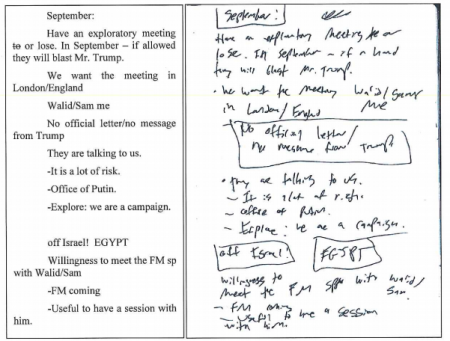 September:
Have an exploratory meeting
to or lose. In September – if allowed
they will blast Mr. Trump.
We want the meeting in
London/England
Walid/Sam me
No official letter/no message
from Trump
They are talking to us.
-It is a lot of risk.
-Office of Putin.
-Explore: we are a campaign.
off Israel! EGYPT
Willingness to meet the FM sp
with Walid/Sam
-FM coming
-Useful to have a session with
him.
September:
Have an exploratory meeting to or
lose. In September – if
they will blast Mr. Trump.
• we want the meeting Walid/Sam
in London/England me
No official letter/
no message from Trump
• They are talking to us.
– It is a lot of risk.
– office of Putin.
– Explore: we are a campaign.
off Israel! EGYPT
willingness to
meet the FM sp with Walid/
Sam
– FM coming
– Useful to have a session
with him.